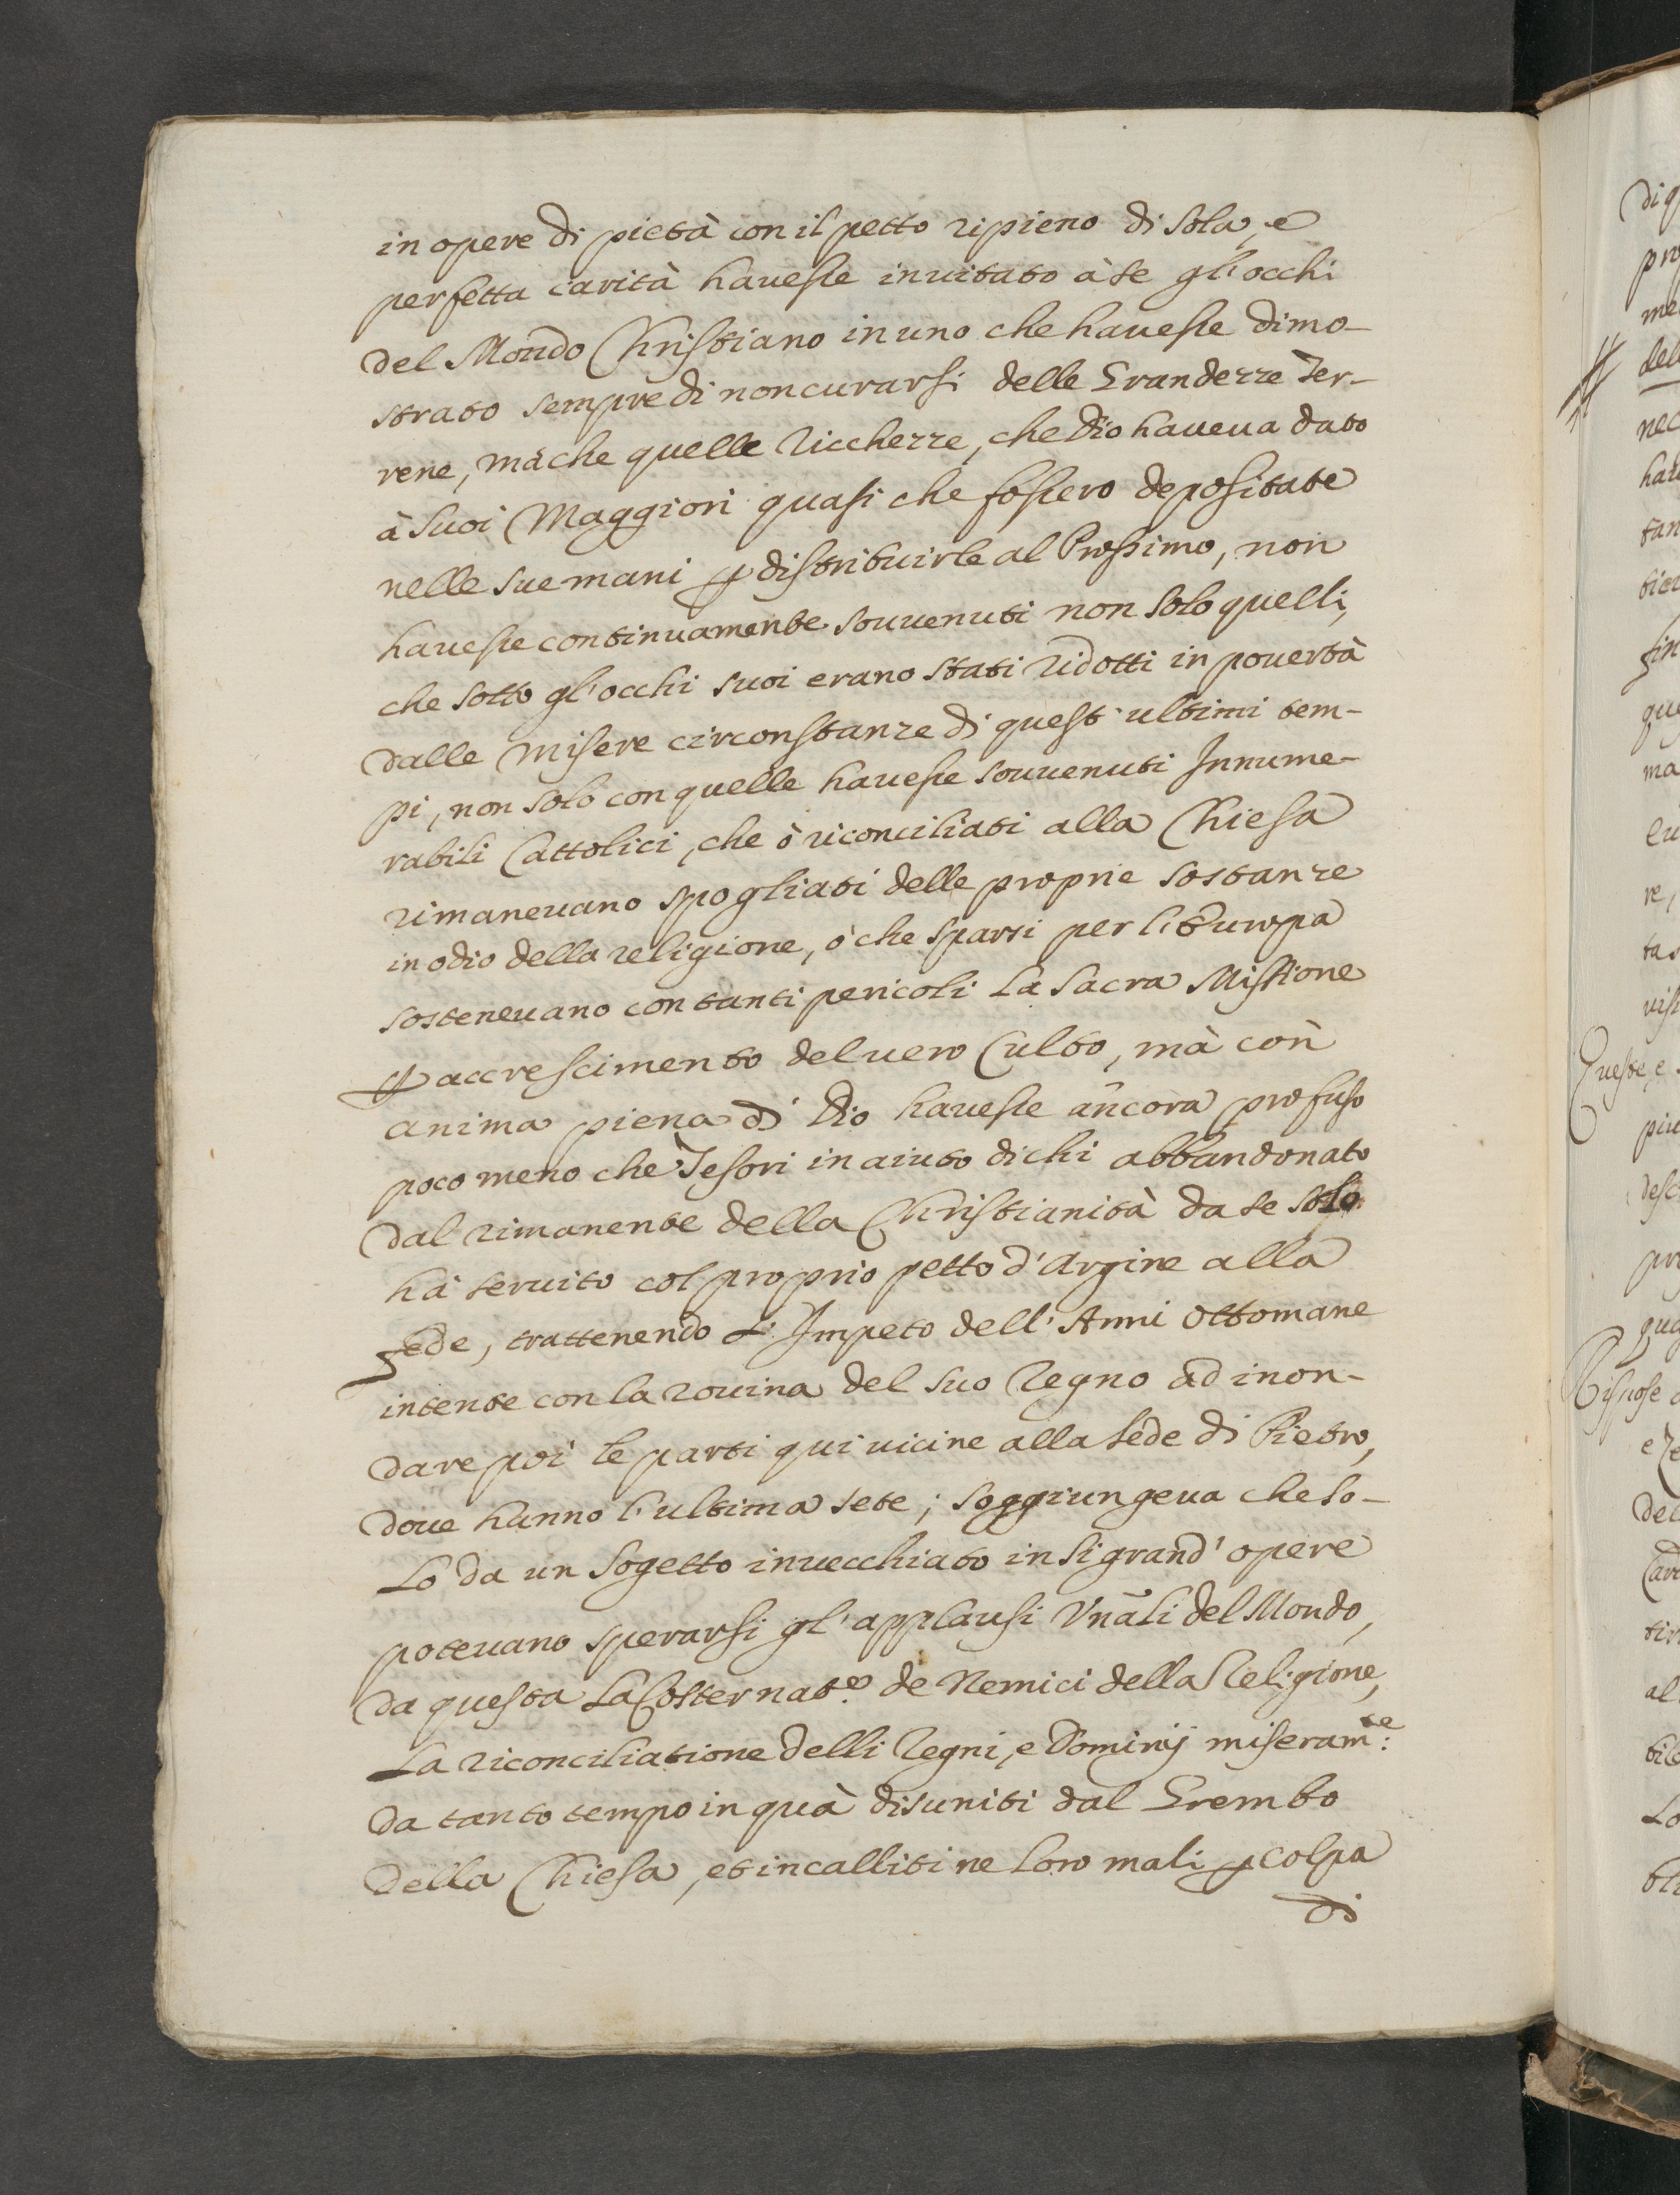 in opere di pietà con il petto ripieno di sola, e
perfetta carità hauesse inuitato à se gl'occhi
del Mondo Christiano in uno che hauesse dimo-
strato sempre di non curarsi delle Grandezze Ter-
rene, mà che quelle Ricchezze, che Dio haueua dato
à suoi Maggiori quasi che fossero depositate
nelle sue mani ꝑ distribuirle al Prossimo, non
hauesse continuamente souuenuti non solo quelli,
che sotto gl'occhi suoi erano stati ridotti in pouertà
dalle misere circonstanze di quest'ultimi tem-
pi, non solo con quelle hauesse souuenuti Innume-
rabili Cattolici, che ò riconciliati alla Chiesa
rimaneuano spogliati delle proprie sostanze
in odio della religione, ò che sparsi per l'Europa
sosteneuano con tanti pericoli la sacra Missione
ꝑ accrescimento del uero Culto, mà con
anima piena di Dio hauesse ancora profuso
poco meno che Tesori in aiuto di chi abbandonato
dal rimanente della Christianità da se solo
hà seruito col proprio petto d'Argine alla
fede, trattenendo L'Impeto dell'Armi Ottomane
intente con la rouina del suo Regno ad inon-
dare poi le parti qui uicine alla sede di Pietro,
doue hanno l'ultima sete; soggiungeua che so-
lo da un sogetto inuecchiato in si grand'opere
poteuano sperarsi gl'applausi Vnãli del Mondo,
da questa la Costernat.e de Nemici della Religione,
La riconciliatione delli Regni, e Dominij miseram.te
da tanto tempo in quà disuniti dal Grembo
della Chiesa, et incalliti ne loro mali ꝑ colpa
di